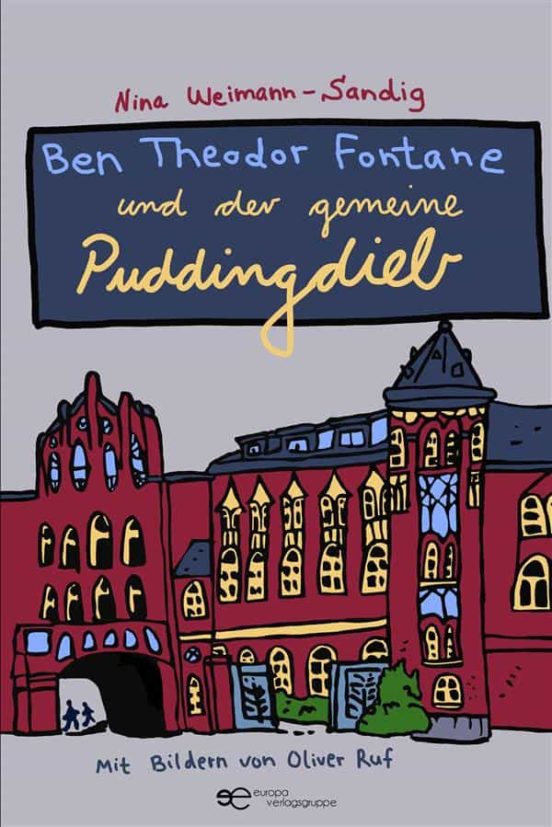 Nina Weimann-Sandig
Ben Theodor Fontane
und der gemeine
Puddingdieb
Mit Bildern von Oliver Ruf
europa
verlagsgruppe